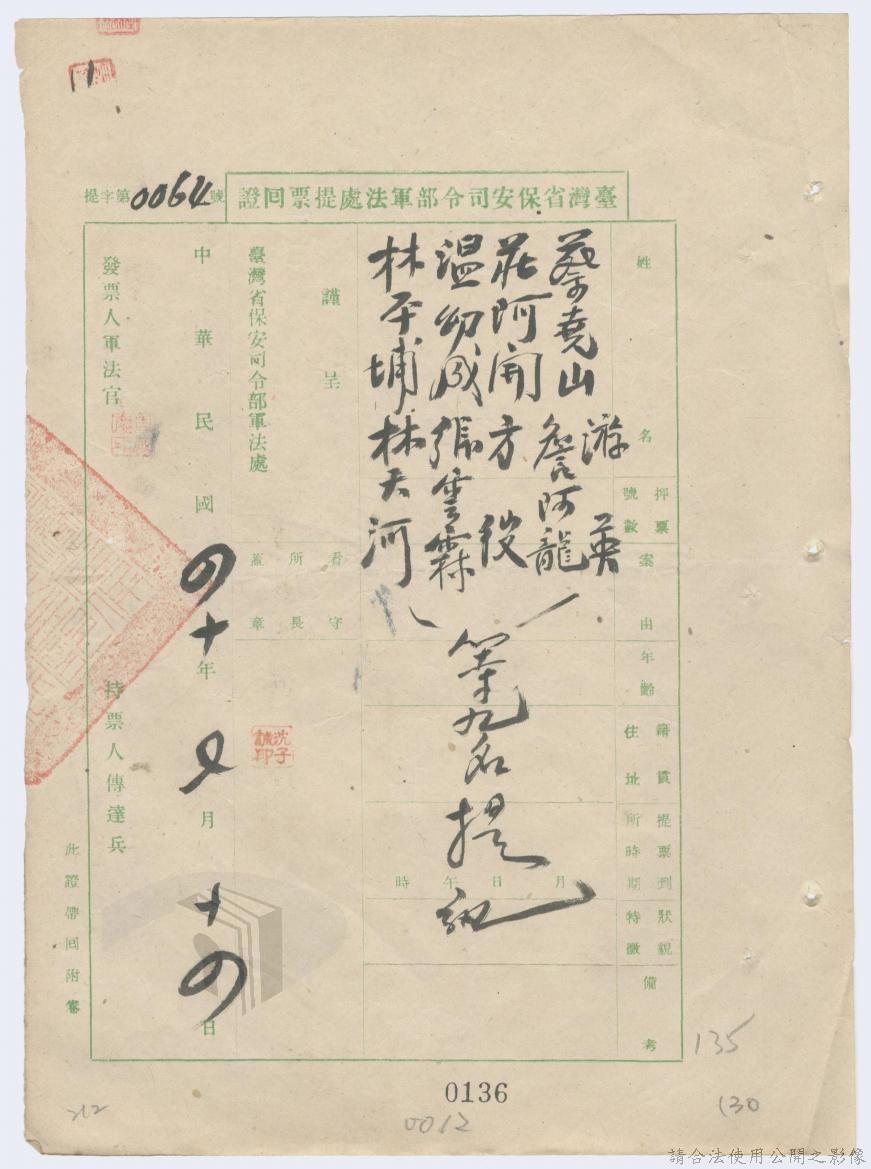 臺灣省保安司令部軍法處提票回證
提字第0064號
姓名
押票號數
案由
年齡
籍貫住址
提票到所時期
狀貌特徵
備考
蔡堯山 游英
詹阿龍
莊阿開 方役
温幼成 張雲霖
林平埔 林天河
等九名提訊
月日午時
謹呈
臺灣省保安司令部軍法處
看守所長蓋章
沈子誠印
中華民國四十年 月十四日
發票人軍法官
持票人傳達兵
此證帶回附卷
11
135
0136
0012
130
212
請合法使用公開之影像